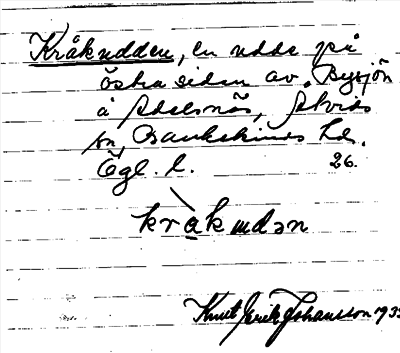 Kråkudden, en udde på
östra sidan av Bysjön
å Adelsnäs, Åtvids
sn, Bankekinds hd.
Ögl. l. 26.
kràkɯdən
Knut Erik Johansson 193